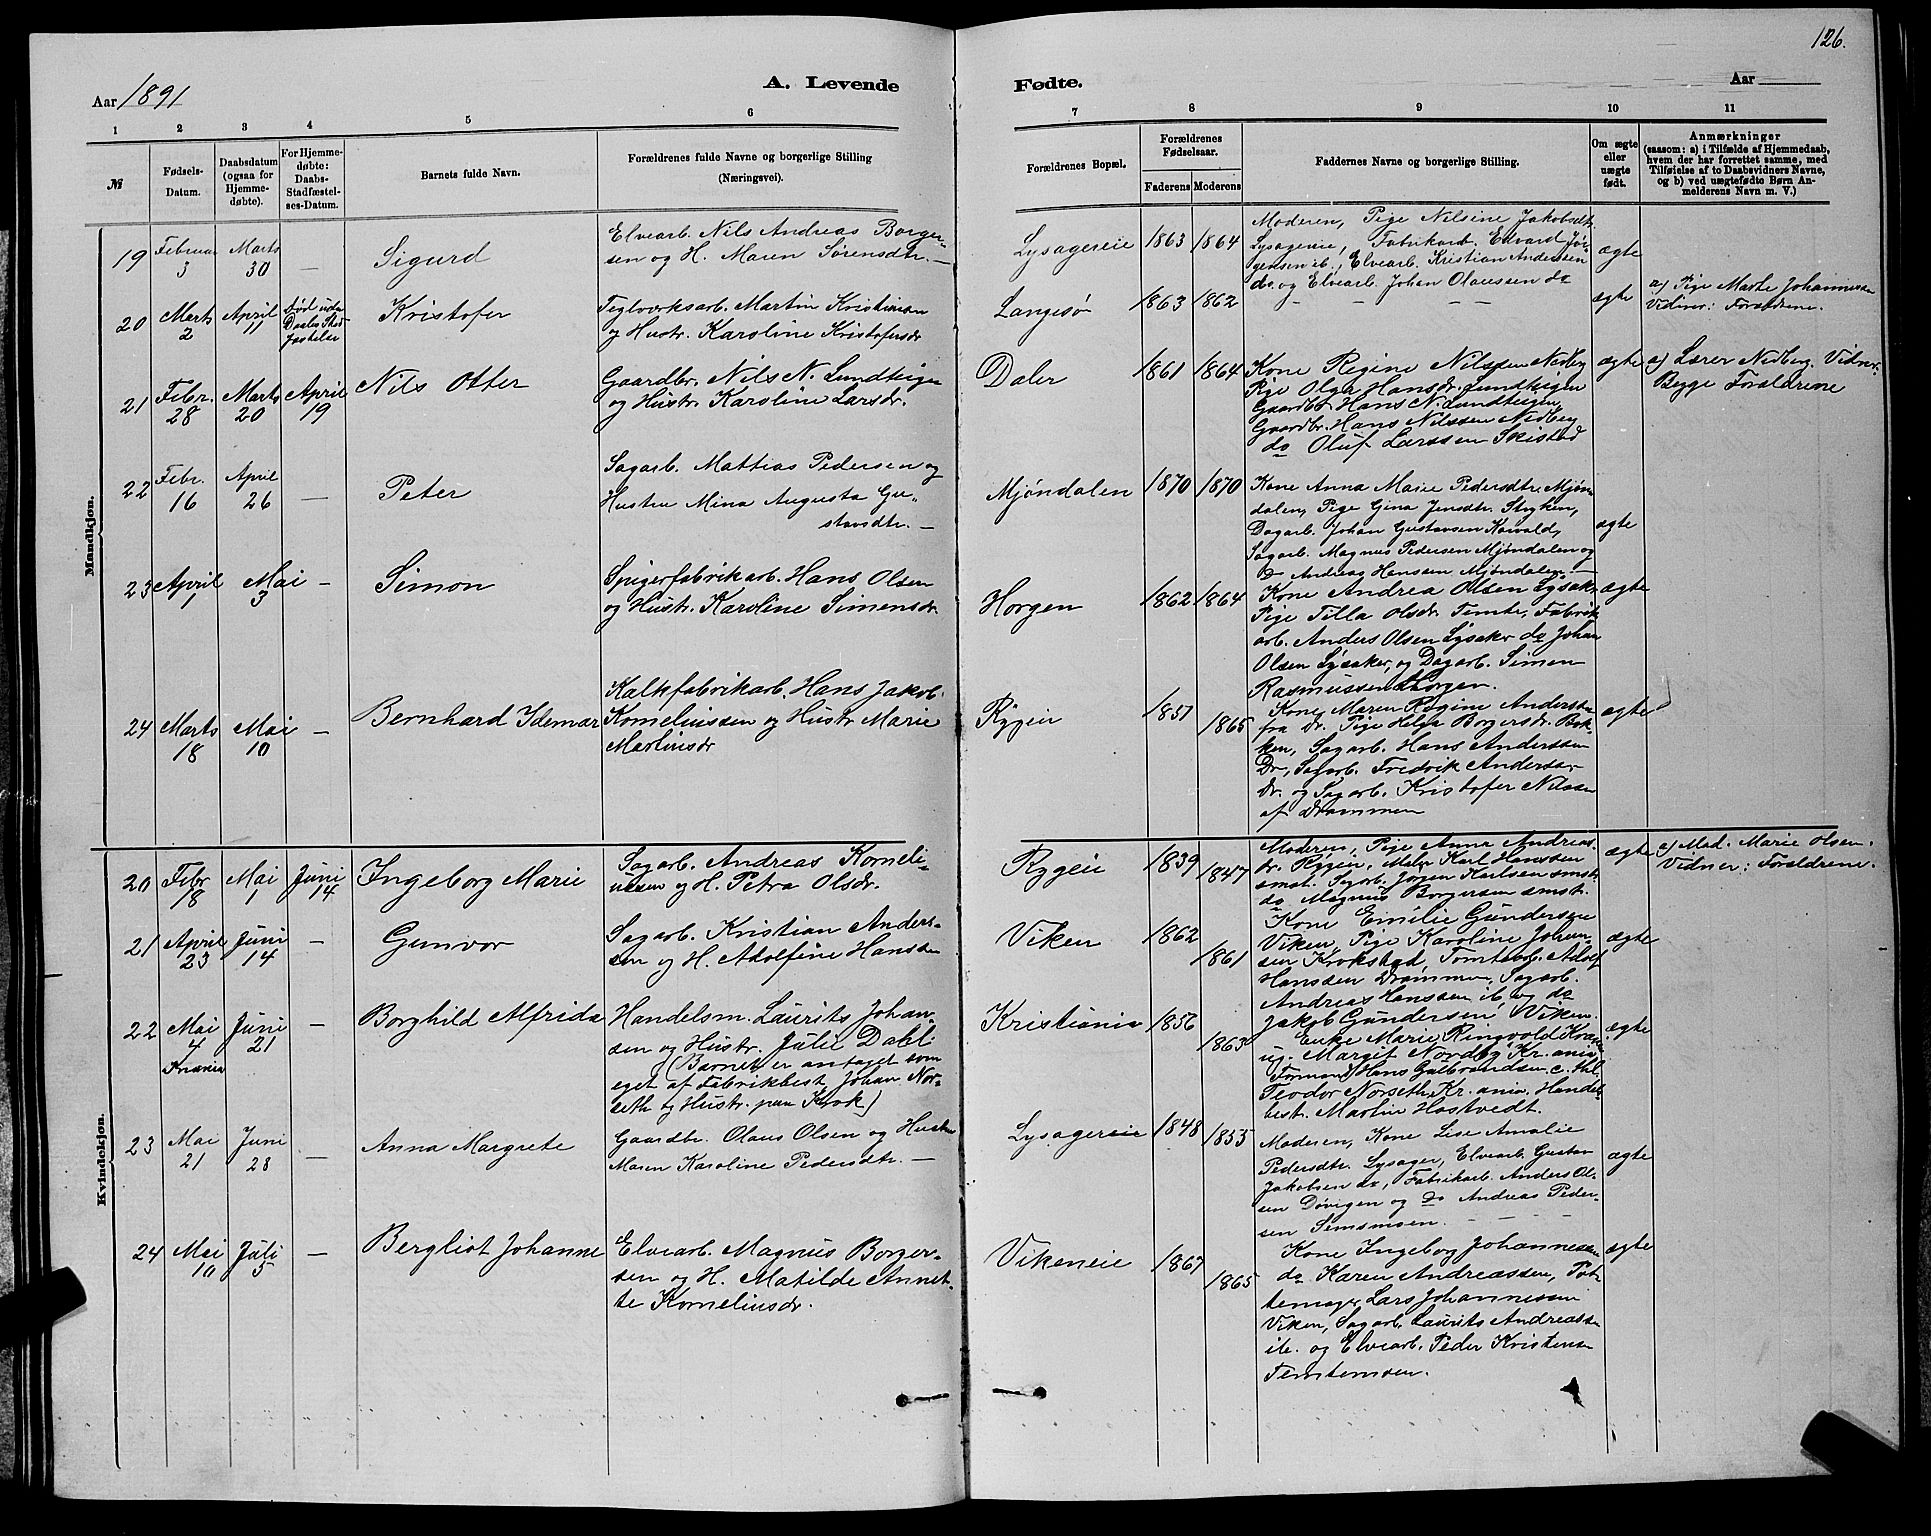 126.
Aar 1891
A. Levende
Fødte.
Aar
1 2 3 4 5 6 7 8 9 10 11
№
Fødsels-
Datum.
Daabsdatum
(ogsaa for
Hjemme-
døbte).
For Hjemme-
døbte:
Daabs-
Stadfæstel-
ses-Datum.
Barnets fulde Navn.
Forældrenes fulde Navne og borgerlige Stilling
(Næringsvei).
Forældrenes Bopæl.
Forældrenes
Fødselsaar.
Faderens Moderens
Faddernes Navne og borgerlige Stilling.
Om ægte
eller
uægte
født.
Anmærkninger
(saasom: a) i Tilfælde af Hjemmedaab,
hvem der har forrettet samme, med
Tilføielse af to Daabsvidners Navne,
og b) ved uægtefødte Børn An-
melderens Navn m. V.)
Mandkjøn.
19 Februar 3 Marts 30 — Sigurd
Elvearb. Nils Andreas Borger-
sen og H. Maren Sørensdtr. —
Lysagereie 1863 1864
Moderen, Pige Nilsine Jakobsdtr.
Lysagereie, Fabrikarb. Edvard Jør-
gensen ib., Elvearb. Kristian Andersen
do. og Elvearb. Johan Olaussen do
ægte
20 Marts 2 April 11 død uden Daabs Stad
fæstelse
Kristofer
Teglværksarb. Martin Kristiansen
og Hustr. Karoline Kristofersdr
Langesø 1863 1862 — — — ægte
a) Pige Marte Johannesen
Vidner: Forældrene.
21 Febr. 28 Marts 20 April 19 Nils Otter
Gaardbr. Nils N. Lundteigen
og Hustr. Karoline Larsdr.
Daler 1861 1864
Kone Regine Nilssen Nedberg
Pige Olga Hansdr. Lundteigen
Gaardbr. Hans N. Lundteigen,
Gaardbr. Hans Nilssen Nedberg
do Oluf Larssen Skistad
ægte
a) Lærer Nedberg. Vidner:
Begge Forældrene
22 Febr. 16 April 26 — Peter
Sagarb. Mattias Pedersen og
Hustru Mina Augusta Gu-
stavsdtr. —
Mjøndalen 1870 1870
Kone Anna Marie Pedersdtr. Mjøn-
dalen, Pige Gina Jensdtr. Stryken,
Dagarb. Johan Gustavsen Kaivald,
Sagarb. Magnus Pedersen Mjøndalen og
Do Andreas Hanssen Mjøndalen. —
ægte
23 April 1 Mai 3 — Simon
Spigerfabrikarb. Hans Olsen
og Hustr. Karoline Simensdr.
Horgen 1862 1864
Kone Andrea Olsen Lysaker
Pige Tilla Olsdr. Temte, Fabrik
arb. Anders Olsen Lysaker do Johan
Olsen Lysaker, og Dagarb. Simen
Rasmussen Horgen.
ægte
24 Marts 18 Mai 10 — Bernhard Idemar
Kalkfabrikarb. Hans Jakob
Korneliussen og Hustr Marie
Martinsdr
Rygeie 1851 1865
Kone Maren Regine Anderssen
fra Dr. Pige Helga Borgersdr. Bak-
ken, Sagarb. Hans Anderssen
Dr., Sagarb. Fredrik Anderssen
Dr. og Sagarb. Kristofer Nilssen
af Drammen
ægte
Kvindekjøn.
20 Febr 18 Mai 1 Juni 14 Ingeborg Marie
Sagarb. Andreas Korneli-
ussen og H. Petra Olsdr.
Rygeie 1839 1847
Moderen, Pige Anna Andreas
dr. Rygeie, Maler Karl Hanssen
smst. Sagarb. Jørgen Karlsen smst
do Magnus Borgersen smst.
ægte
a) Mad. Marie Olsen.
Vidner: Forældrene.
21 April 23 Juni 14 — Gunvor
Sagarb. Kristian Anders-
sen og H. Adolfine Hanssen
Viken 1862 1861
Kone Emilie Gundersen
Viken, Pige Karoline Johan-
sen Krokstad, Tomtearb. Adolf
Hanssen Drammen, Sagarb.
Andreas Hanssen ib. og do
Jakob Gundersen Viken.
ægte
22 Mai 4 Kr.ania Juni 21 — Borghild Alfrida
Handelsm. Laurits Johan-
sen og Hustr. Julie Dahl
(Barnet er antaget som
eget af Fabrikbest. Johan Nor-
seth og Hustr. paa Krok)
Kristiania 1856 1863
Enke Marie Ringvold Krok
ug. Margit Nordby Kr.ania
Formand Hans Gulbrandsen
Teodor Norseth Kr.ania, Handels
best. Martin Hostvedt.
ægte
23 Mai 21 Juni 28 — Anna Margrete
Gaardbr. Olaus Olsen og Hustru
Maren Karoline Pedersdtr. —
Lysagereie 1848 1855
Moderen, Kone Lise Amalie
Pedersdtr. Lysager, Elvearb. Gustav
Jakobsen do, Fabrikarb. Anders Ol-
sen Døvigen og do Andreas Peder-
sen Semsmoen.
ægte
24 Mai 10 Juli 5 — Bergliot Johanne
Elvearb. Magnus Borger-
sen og H. Matilde Annet-
te Korneliusdr.
Vikeneie 1867 1865
Kone Ingeborg Johannessen
do Karen Andreassen, Pot-
temager Lars Johannessen
Viken, Sagarb. Laurits Andreassen
ib. og Elvearb. Peder Kristensen
Temtemoen.
ægte